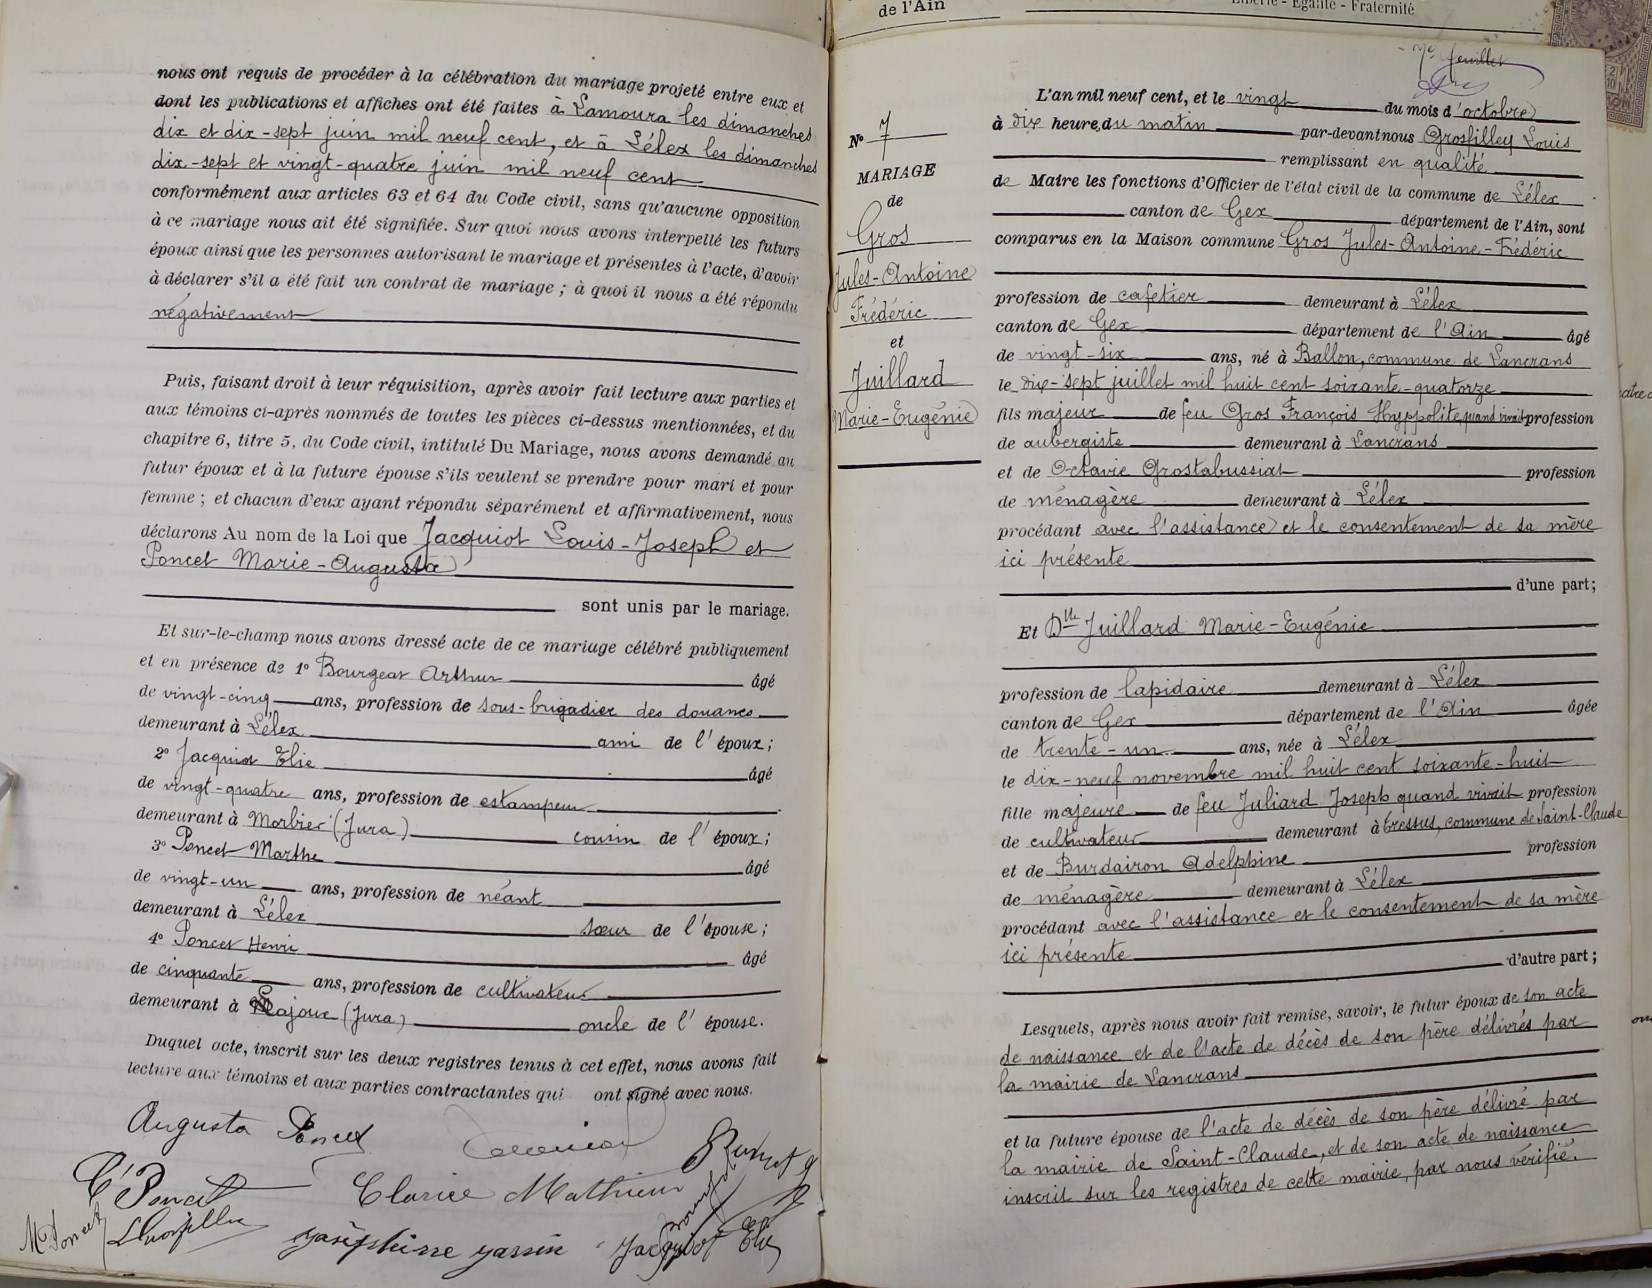 nous ont requis de procéder à la célébration du mariage projeté entre eux et
dont les publications et affiches ont été faites à Lamoura les dimanches
dix et dix-sept juin mil neuf cent, et à Lélex les dimanches
dix-sept et vingt-quatre juin mil neuf cent
conformément aux articles 63 et 64 du Code civil, sans qu'aucune opposition
à ce mariage nous ait été signifiée. Sur quoi nous avons interpellé les futurs
époux ainsi que les personnes autorisant le mariage et présentes à l'acte, d'avoir
à déclarer s'il a été fait un contrat de mariage ; à quoi il nous a été répondu
négativement
Puis, faisant droit à leur réquisition, après avoir fait lecture aux parties et
aux témoins ci-après nommés de toutes les pièces ci-dessus mentionnées, et du
chapitre 6, titre 5, du Code civil, intitulé Du Mariage, nous avons demandé au
futur époux et à la future épouse s'ils veulent se prendre pour mari et pour
femme ; et chacun d'eux ayant répondu séparément et affirmativement, nous
déclarons Au nom de la Loi que Jacquiot Louis-Joseph et
Poncet Marie-Augusta
sont unis par le mariage.
Et sur-le-champ nous avons dressé acte de ce mariage célébré publiquement
et en présence de 1° Bourgeat Arthur âgé
de vingt-cinq ans, profession de sous-brigadier des douanes
demeurant à Lélex ami de l'époux ;
2° Jacquiot Elie âgé
de vingt-quatre ans, profession de estampeur
demeurant à Morbier (Jura) cousin de l'époux ;
3° Poncet Marthe âgé
de vingt-un ans, profession de néant
demeurant à Lélex sœur de l'épouse ;
4° Poncet Henri âgé
de cinquante ans, profession de cultivateur
demeurant à Lajoux (Jura) oncle de l'épouse.
Duquel acte, inscrit sur les deux registres tenus à cet effet, nous avons fait
lecture aux témoins et aux parties contractantes qui ont signé avec nous.
Augusta Poncet
Poncet
Clarice Mathieu
M Poncet
Jacquiot Elie
de l'Ain
Liberté - Egalité - Fraternité
7e feuillet
N° 7
MARIAGE
de
Gros
Jules-Antoine
Frédéric
et
Juillard
Marie-Eugénie
L'an mil neuf cent, et le vingt du mois d'octobre
à dix heure, du matin par-devant nous Grosfilley Louis
remplissant en qualité
de Maire les fonctions d'Officier de l'état civil de la commune de Lélex
canton de Gex département de l'Ain, sont
comparus en la Maison commune Gros Jules-Antoine-Frédéric
profession de cafetier demeurant à Lélex
canton de Gex département de l'Ain âgé
de vingt-six ans, né à Ballon, commune de Lancrans
le dix-sept juillet mil huit cent soixante-quatorze
fils majeur de feu Gros François Hyppolite, quand vivait profession
de aubergiste demeurant à Lancrans
et de Octavie Grostabussiat profession
de ménagère demeurant à Lélex
procédant avec l'assistance et le consentement de sa mère
ici présente
d'une part ;
Et Dlle Juillard Marie-Eugénie
profession de lapidaire demeurant à Lélex
canton de Gex département de l'Ain âgée
de trente-un ans, née à Lélex
le dix-neuf novembre mil huit cent soixante-huit
fille majeure de feu Juliard Joseph quand vivait profession
de cultivateur demeurant à Cressus, commune de Saint-Claude
et de Burdairon Adelphine profession
de ménagère demeurant à Lélex
procédant avec l'assistance et le consentement de sa mère
ici présente
d'autre part ;
Lesquels, après nous avoir fait remise, savoir, le futur époux de son acte
de naissance et de l'acte de décès de son père délivrés par
la mairie de Lancrans
et la future épouse de l'acte de décès de son père délivré par
la mairie de Saint-Claude, et de son acte de naissance
inscrit sur les registres de cette mairie, par nous vérifié.